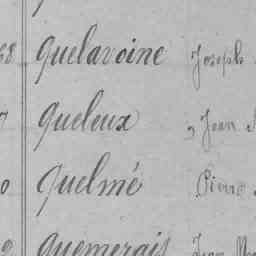 68 Quelavoine Joseph
7 Queleux " Jean
0 Quelmé Pierre
Quemerais Jean